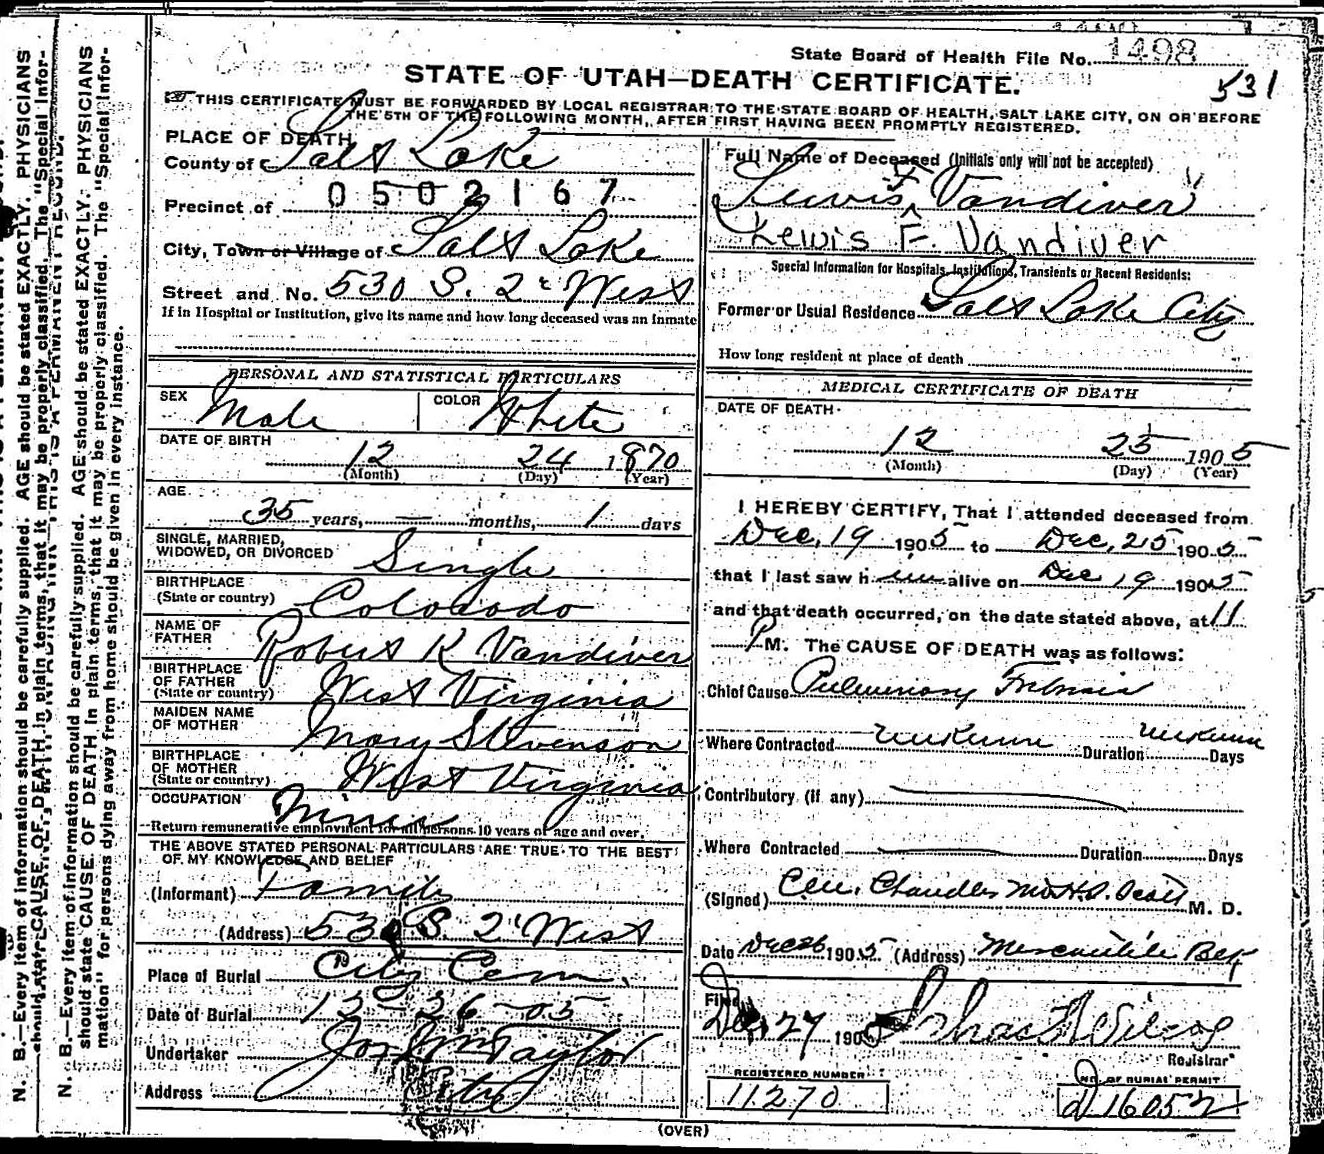 State Board of Health File No. 1498
531
STATE OF UTAH—DEATH CERTIFICATE.
THIS CERTIFICATE MUST BE FORWARDED BY LOCAL REGISTRAR TO THE STATE BOARD OF HEALTH, SALT LAKE CITY, ON OR BEFORE
THE 5TH OF THE FOLLOWING MONTH, AFTER FIRST HAVING BEEN PROMPTLY REGISTERED.
PLACE OF DEATH
County of Salt Lake
0502167
Precinct of
City, Town or Village of Salt Lake
Street and No. 530 S. 2d West
If in Hospital or Institution, give its name and how long deceased was an Inmate
PERSONAL AND STATISTICAL PARTICULARS
SEX Male COLOR White
DATE OF BIRTH
12 24 1870
(Month) (Day) (Year)
AGE
35 years, — months, 1 days
SINGLE, MARRIED,
WIDOWED, OR DIVORCED Single
BIRTHPLACE
(State or country) Colorado
NAME OF
FATHER Robert K Vandiver
BIRTHPLACE
OF FATHER
(State or country) West Virginia
MAIDEN NAME
OF MOTHER Mary Stevenson
BIRTHPLACE
OF MOTHER
(State or country) West Virginia
OCCUPATION Miner
Return remunerative employment for all persons 10 years of age and over.
THE ABOVE STATED PERSONAL PARTICULARS ARE TRUE TO THE BEST
OF MY KNOWLEDGE AND BELIEF
(Informant) Family
(Address) 530 S. 2d West
Place of Burial City Cem.
Date of Burial 12-26-05
Undertaker Jos Wm Taylor
Address City
Full Name of Deceased (Initials only will not be accepted)
Lewis F Vandiver
Lewis F. Vandiver
Special Information for Hospitals, Institutions, Transients or Recent Residents:
Former or Usual Residence Salt Lake City
How long resident at place of death
MEDICAL CERTIFICATE OF DEATH
DATE OF DEATH
12 25 1905
(Month) (Day) (Year)
I HEREBY CERTIFY, That I attended deceased from
Dec. 19 1905 to Dec. 25 1905
that I last saw him alive on Dec 19 1905
and that death occurred, on the date stated above, at 11
P M. The CAUSE OF DEATH was as follows:
Chief Cause Pulmonary
Where Contracted unknown Duration unknown Days
Contributory (if any)
Where Contracted Duration Days
(Signed) Chandler M. D.
Date Dec 26 1905 (Address) Mercantile
Filed
Dec. 27 1905
Registrar
REGISTERED NUMBER
11270
NO. OF BURIAL PERMIT
D 16052
(OVER)
N. B.—Every item of information should be carefully supplied. AGE should be stated EXACTLY. PHYSICIANS
should state CAUSE OF DEATH in plain terms, that it may be properly classified. The "Special Infor-
N. B.—Every item of information should be carefully supplied. AGE should be stated EXACTLY. PHYSICIANS
should state CAUSE OF DEATH in plain terms, that it may be properly classified. The "Special Infor-
mation" for persons dying away from home should be given in every instance.